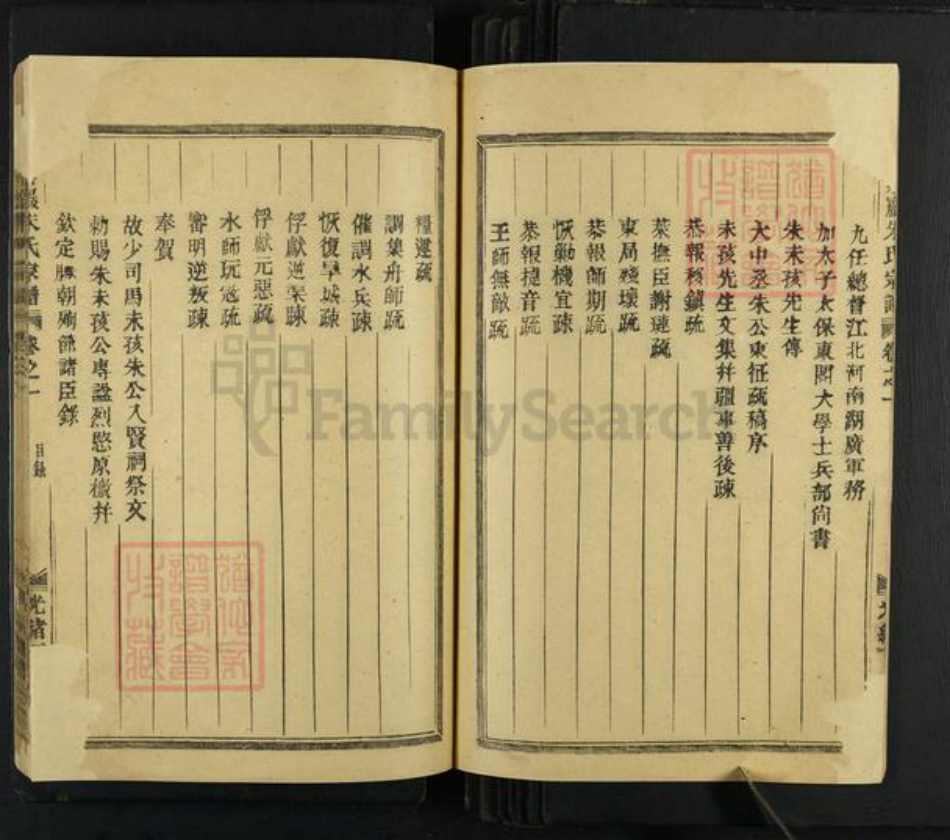 九任總督江北河南湖廣軍務
加太子太保東閣大學士兵部尚書
朱未孩先生傳
大中丞朱公東征疏稿序
未孩先生文集幷疆事善後疎
恭報移鎮疏
萊撫臣謝璉疏
東局殘壞疏
恭報師期疏
恢勦機宜疎
恭報㨗音疏
王師無敵疏
糧運疏
調集舟師疏
催調水兵疎
恢復旱城疎
俘獻逆渠疎
俘獻元惡疏
水師玩寇疏
審明逆叛疎
奉賀
故少司馬未孩朱公入賢祠祭文
勅賜朱未孩公專謚烈愍原檄幷
欽定勝朝殉節諸臣錄
朱氏宗譜 卷之一
目錄
光緒
FamilySearch